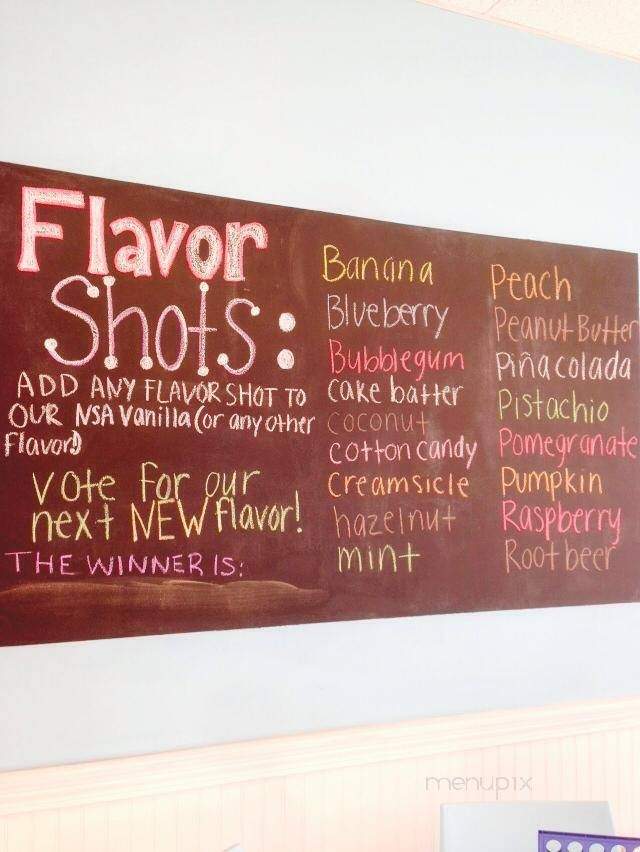 Flavor
Shots:
ADD ANY FLAVOR SHOT TO
OUR NSA Vanilla (or any other
flavor)
Vote for our
next NEW flavor!
THE WINNER IS:
Banana
Blueberry
Bubblegum
cake batter
coconut
cotton candy
Creamsicle
hazelnut
mint
Peach
Peanut Butter
Piña colada
Pistachio
Pomegranate
Pumpkin
Raspberry
Root beer
menupix